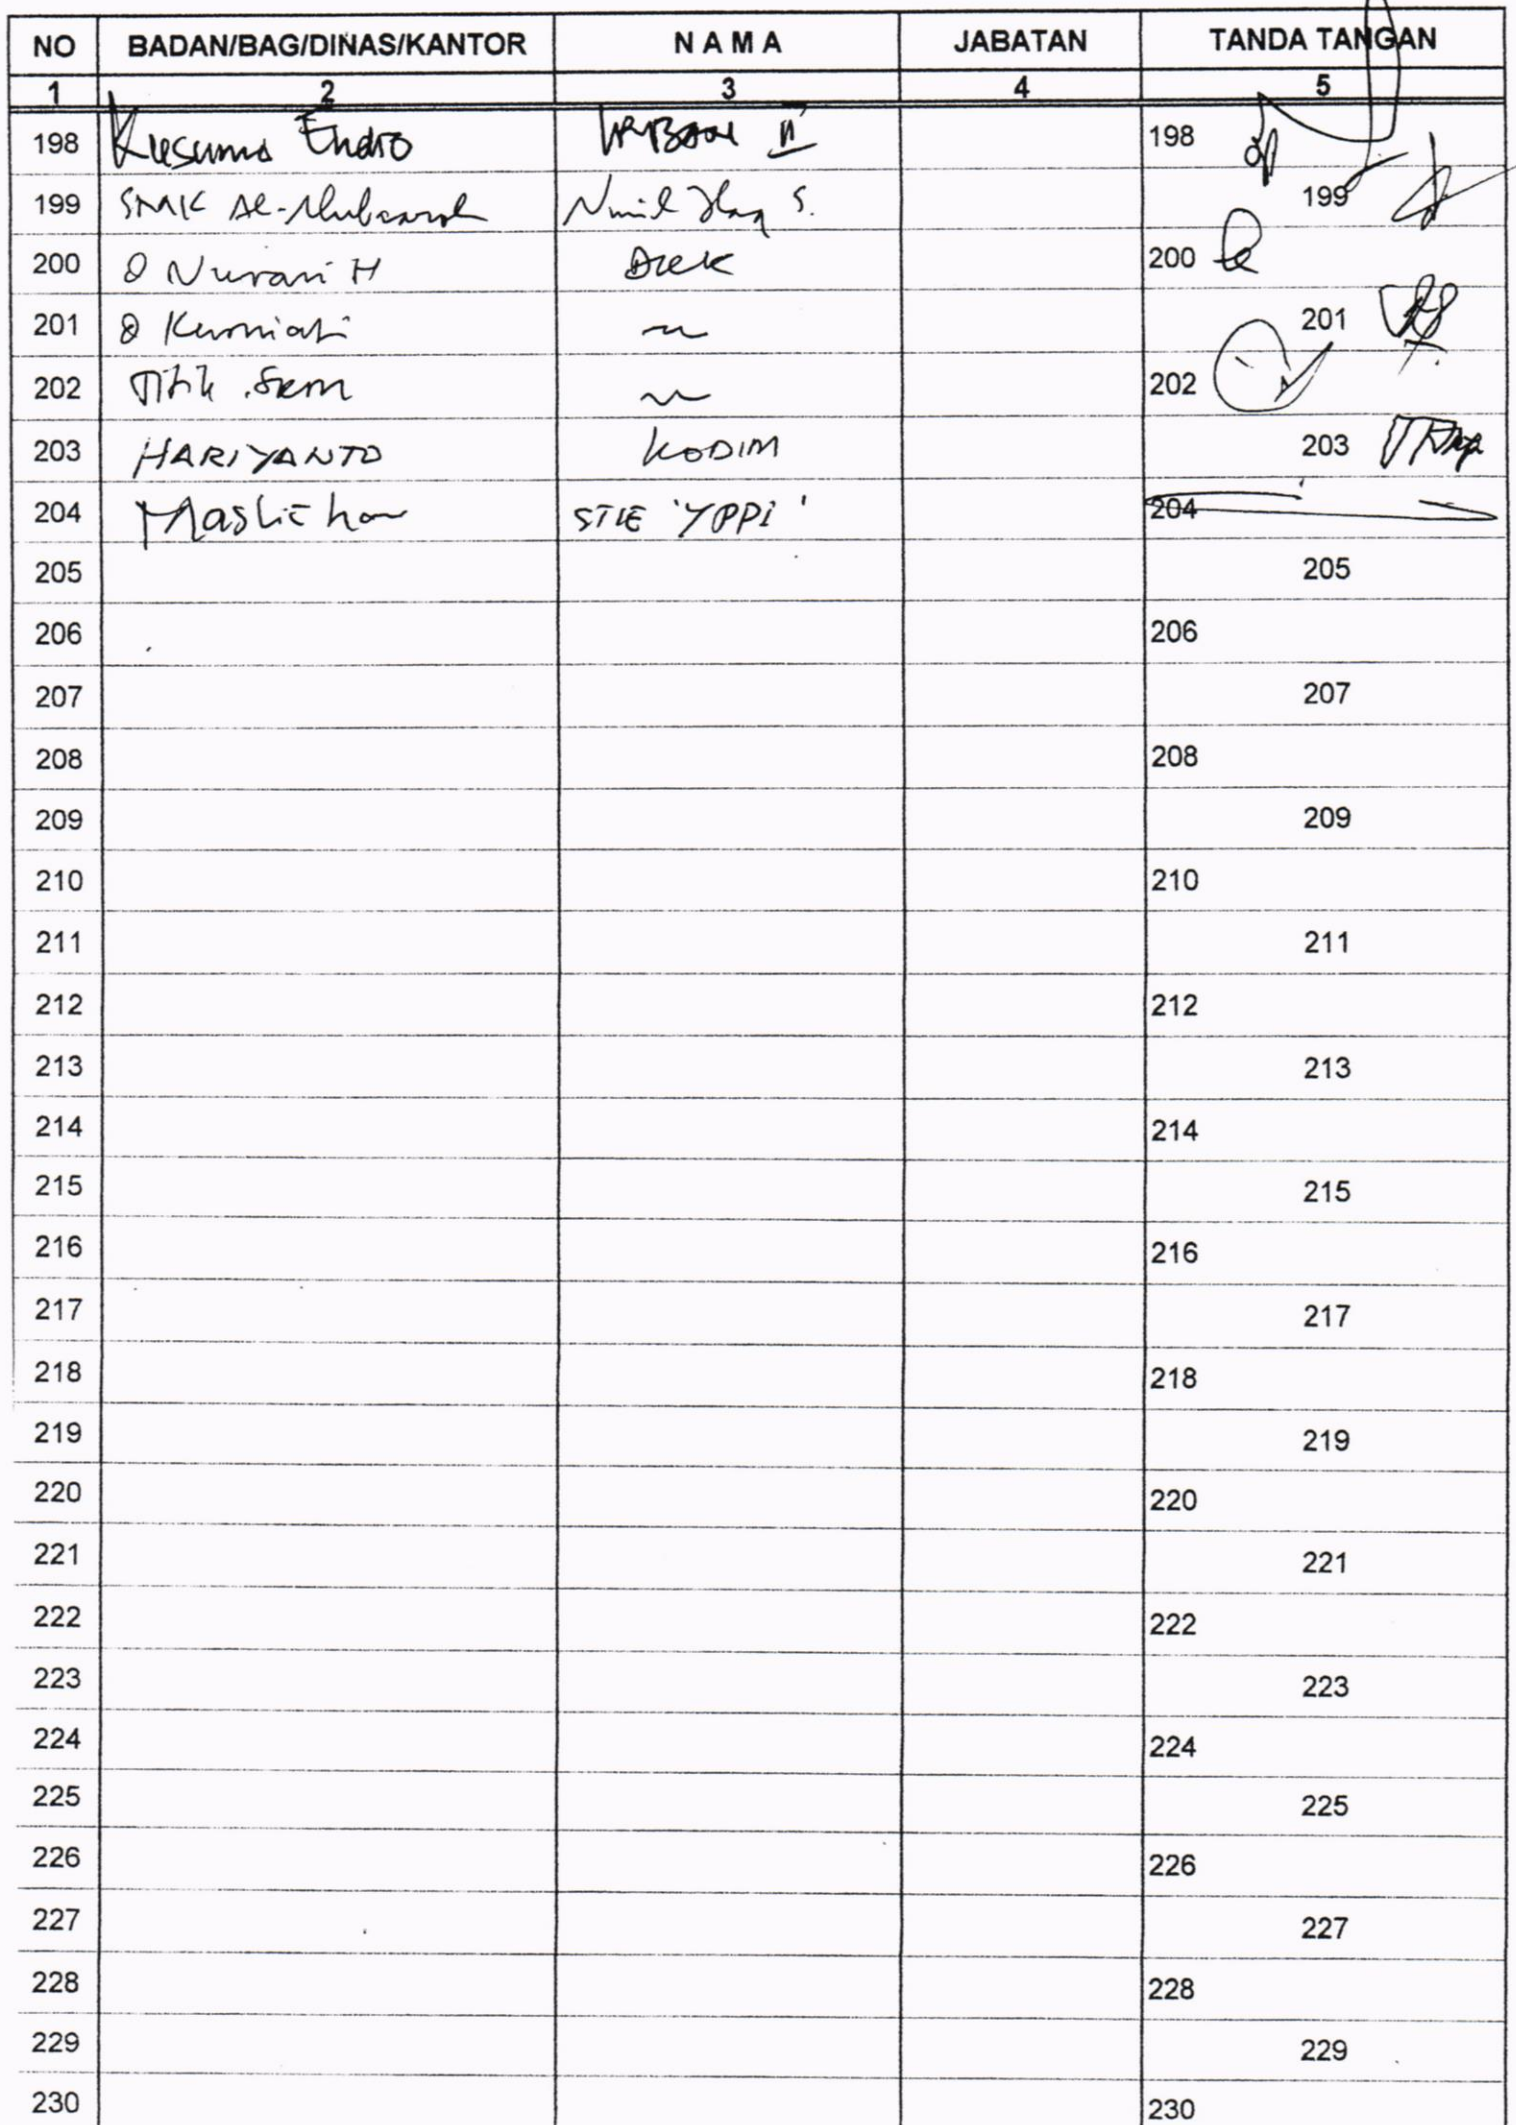 NO BADAN/BAG/DINAS/KANTOR N A M A JABATAN TANDA TANGAN
1 2 3 4 5
198 Kusuma Endro 198
199 SMK Al-Mubaarok S. 199
200 Nurani H 200
201 Kurniati 201
202 Titik 202
203 HARIYANTO KODIM 203
204 Maslichan STIE 'YPPI' 204
205 205
206 206
207 207
208 208
209 209
210 210
211 211
212 212
213 213
214 214
215 215
216 216
217 217
218 218
219 219
220 220
221 221
222 222
223 223
224 224
225 225
226 226
227 227
228 228
229 229
230 230